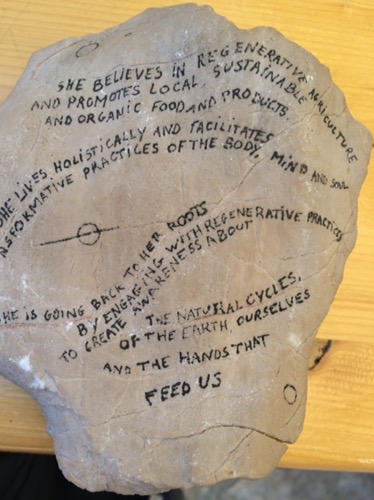 SHE BELIEVES IN REGENERATIVE AGRICULTURE
AND PROMOTES LOCAL, SUSTAINABLE
AND ORGANIC FOOD AND PRODUCTS.
SHE LIVES HOLISTICALLY AND FACILITATES
TRANSFORMATIVE PRACTICES OF THE BODY, MIND AND SOUL
SHE IS GOING BACK TO HER ROOTS
BY ENGAGING WITH REGENERATIVE PRACTICES
TO CREATE AWARENESS ABOUT
THE NATURAL CYCLES,
OF THE EARTH, OURSELVES
AND THE HANDS THAT
FEED US